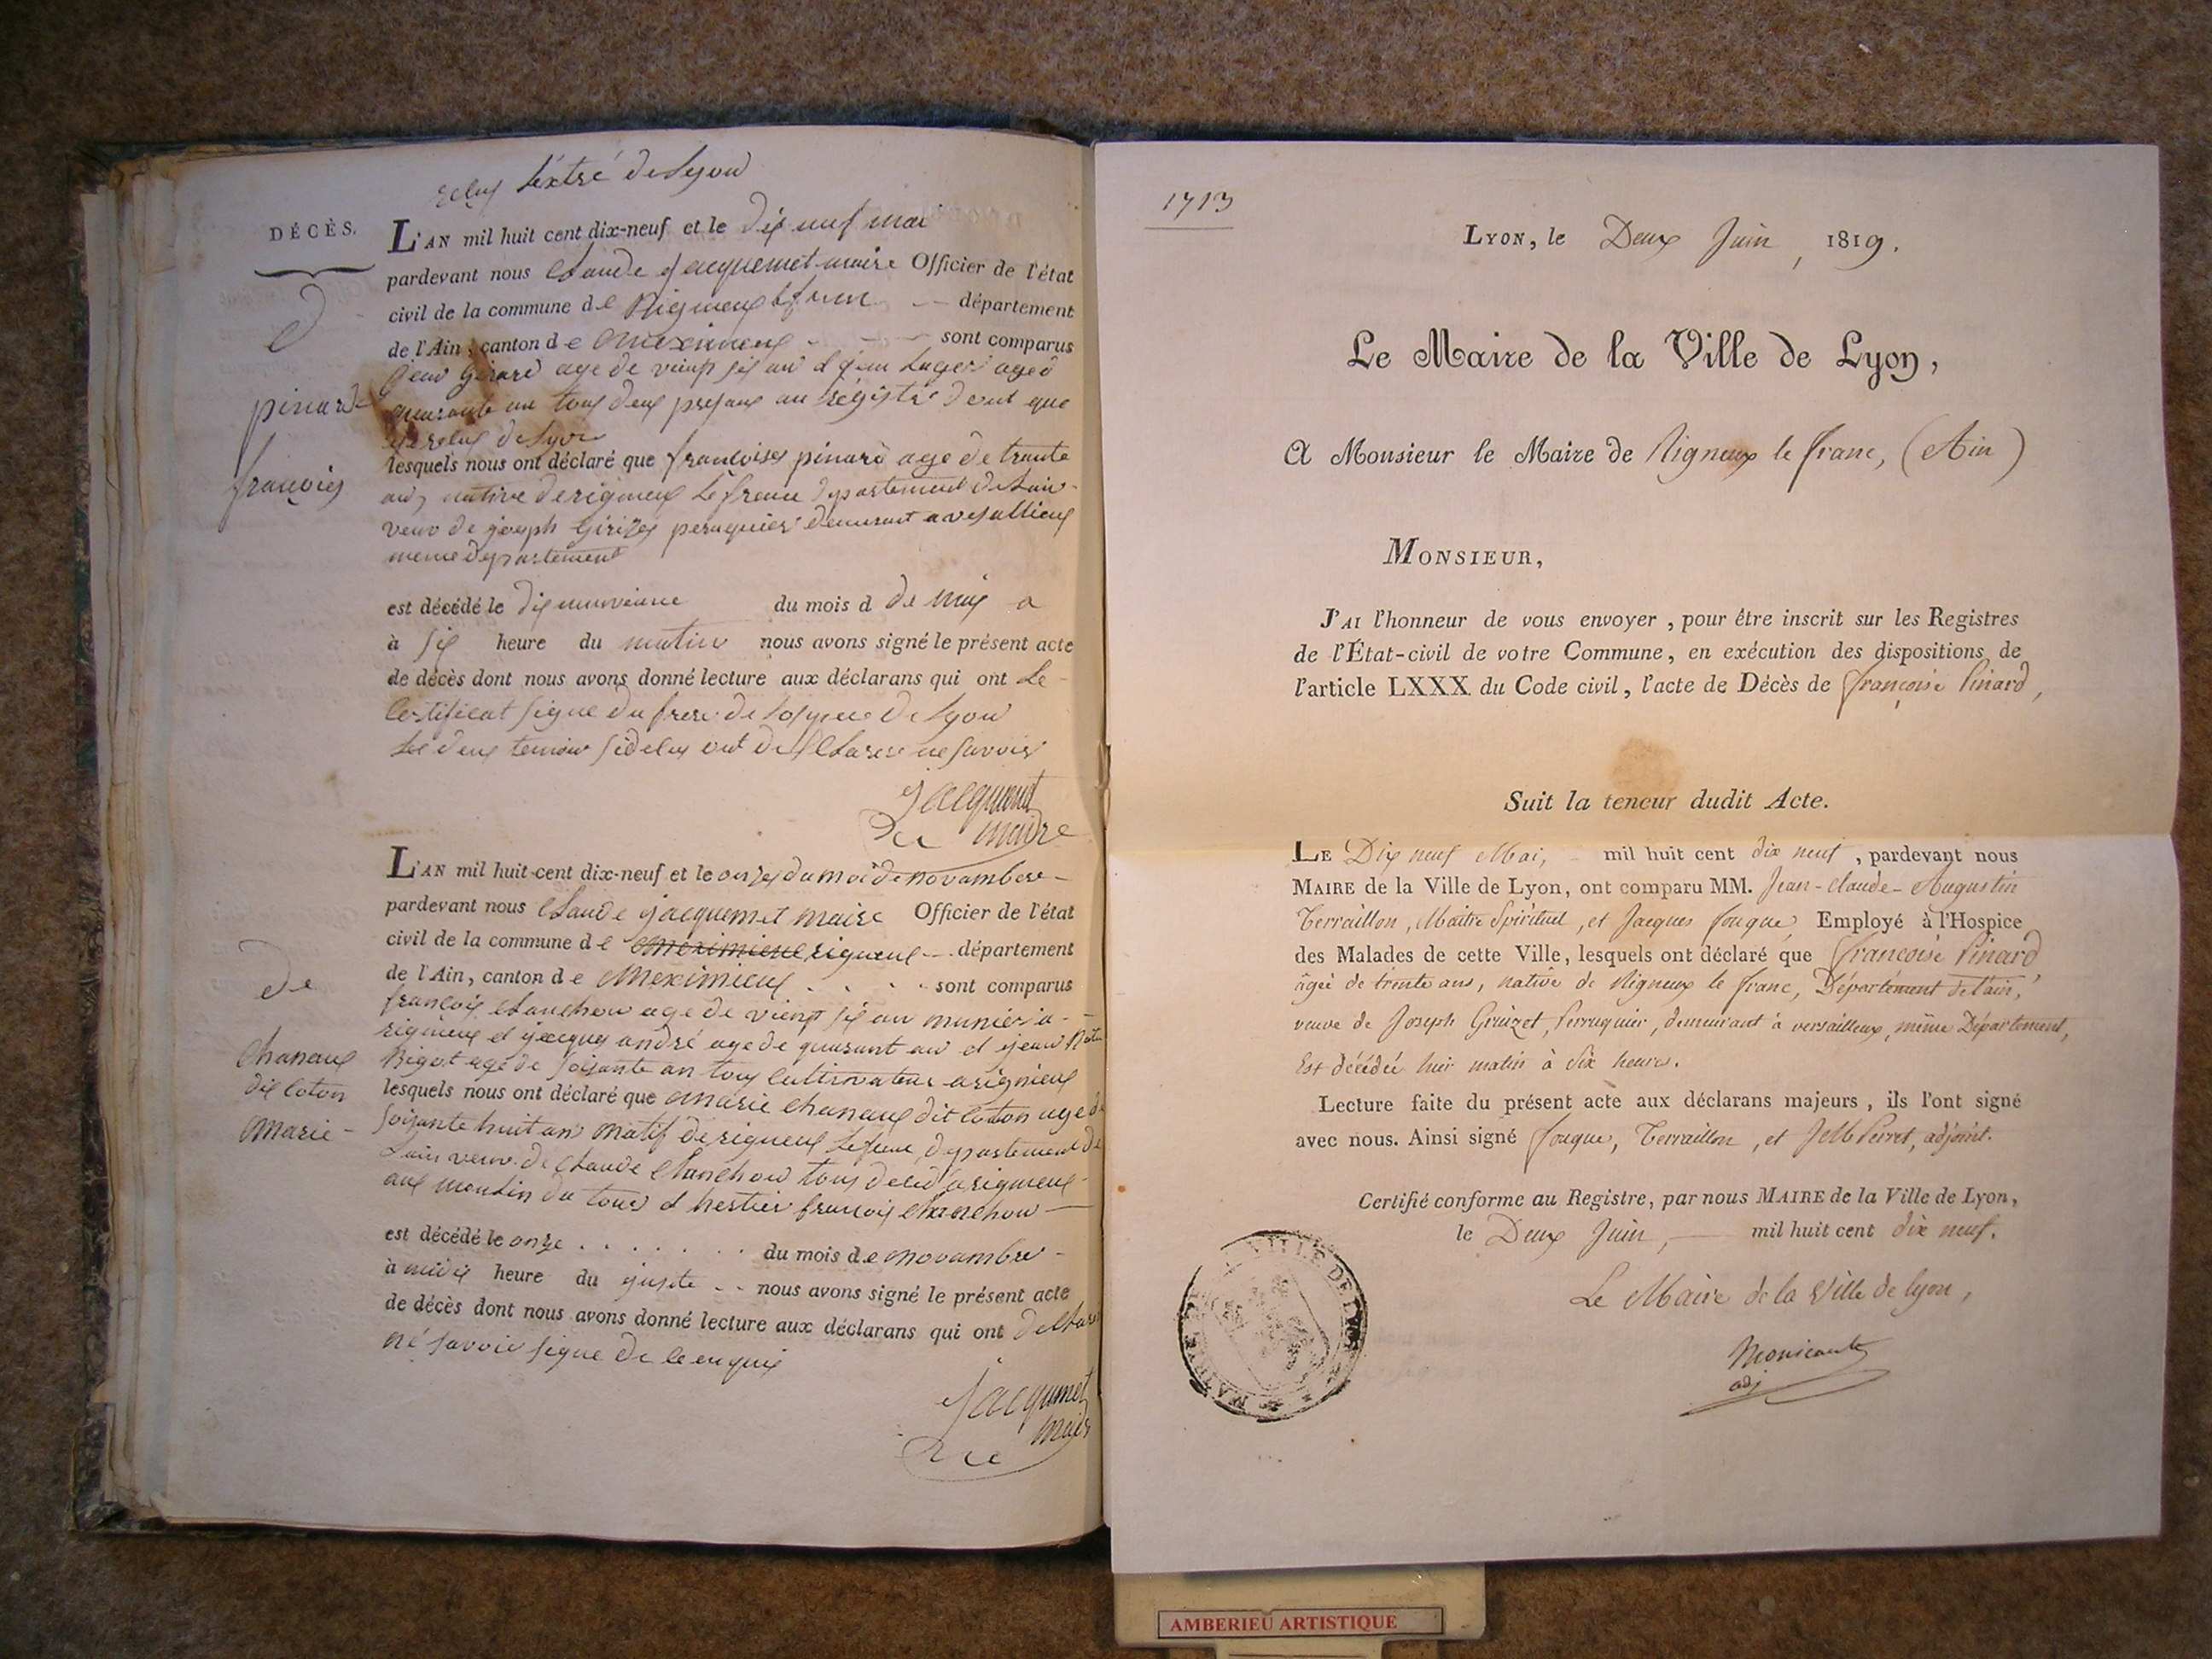 reçus l'extré de Lyon
DÉCÈS.
L'AN mil huit cent dix-neuf et le dix neuf mai
pardevant nous Claude jacquemet maire Officier de l'état
civil de la commune de Rigneux le franc département
de l'Ain, canton de Meximieux sont comparus
jean girard age de vingt six an et jean Luger aged
quarante an tous deux presans au régistre
de Lyon
lesquels nous ont déclaré que françoises pinard age de trante
ans native de rigneux Le franc departement de Lain
veuv de joseph peruquier demurant a
meme departement
est décédé le dix neuvieme du mois d de may a
à six heure du matin nous avons signé le présent acte
de décès dont nous avons donné lecture aux déclarans qui ont Le
Certificat signe du frere de Lospice de Lyon
Les deux temoin ont declarer ne savoir
jacquemet
maire
D
pinard
françoies
L'AN mil huit cent dix-neuf et le onzes du moi de novambere
pardevant nous Claude jacquemet maire Officier de l'état
civil de la commune de meximieux rigneux département
de l'Ain, canton de Meximieux sont comparus
françois Chanchou age de vient six an munier a
rigneux et jacques andré age de quarant an et jean
Bigot age de soisante an tous cultivateur a rignieux
lesquels nous ont déclaré que marie Chanaux dit Coton age de
soisante huit an natif de rigneux Lefranc departement de
Lain veuv de Claude Chanchou tous a rigneux
aux moulin du tour et françois Chanchou
est décédé le onze du mois de novambre
à midi heure du juste nous avons signé le présent acte
de décès dont nous avons donné lecture aux déclarans qui ont
né savoir signe de ce enquis
jacquemet
maire
De
Chanaux
dit Coton
Marie
1713
LYON, le Deux Juin, 1819.
Le Maire de la Ville de Lyon,
A Monsieur le Maire de Rigneux le franc, (Ain)
MONSIEUR,
J'AI l'honneur de vous envoyer, pour être inscrit sur les Registres
de l'État-civil de votre Commune, en exécution des dispositions de
l'article LXXX du Code civil, l'acte de Décès de françoise Pinard,
Suit la teneur dudit Acte.
LE Dix neuf Mai, mil huit cent dix neuf, pardevant nous
MAIRE de la Ville de Lyon, ont comparu MM. Jean-Claude-Augustin
Terraillon, Maître Spirituel, et Jacques fouque, Employé à l'Hospice
des Malades de cette Ville, lesquels ont déclaré que françoise Pinard
âgée de trente ans, native de Rigneux le franc, Département de l'ain,
veuve de Joseph Gruizet, Perruquier, demeurant à versailleux, même Département,
Est décédée hier matin à Six heures.
Lecture faite du présent acte aux déclarans majeurs, ils l'ont signé
avec nous. Ainsi signé fouque, Terraillon, et Perret, adjoint.
Certifié conforme au Registre, par nous MAIRE de la Ville de Lyon,
le Deux Juin, mil huit cent dix neuf.
Le Maire de la Ville de lyon,
adj
MAIRIE VILLE DE LYON
AMBERIEU ARTISTIQUE